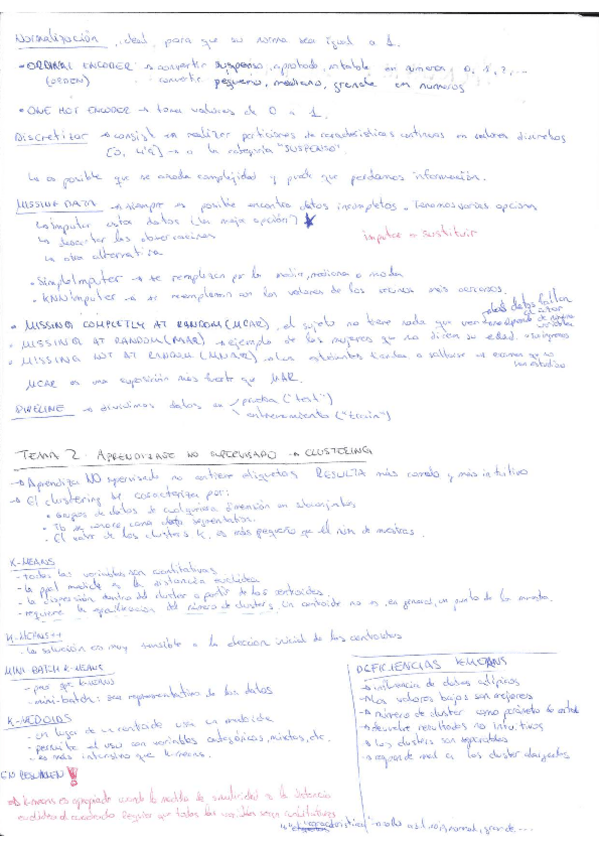 Normalización, ideal para que su norma sea igual a 1.
• ORDINAL ENCODER → convertir suspenso, aprobado, notable en números, 0, 1, 2, ...
(ORDEN) convertir pequeño, mediano, grande en números
• ONE HOT ENCODER → toma valores de 0 a 1.
Discretizar → consiste en realizar particiones de características continuas en valores discretos
[0, 4'9] → a la categoría "SUSPENSO".
Es posible que se añada complejidad y puede que perdamos información.
MISSING DATA → siempre es posible encontrar datos incompletos. Tenemos varias opciones
Imputar estos datos (la mejor opción)
descartar las observaciones
otra alternativa
imputar = sustituir
• SimpleImputer → se remplazan por la media, mediana o moda
• KNNImputer → se remplazan con los valores de los vecinos más cercanos.
• MISSING COMPLETLY AT RANDOM (MCAR), el sujeto no tiene nada que ver
• MISSING AT RANDOM (MAR) → ejemplo de las mujeres que no dicen su edad
• MISSING NOT AT RANDOM (MNAR) → los estudiantes tienden a saltarse un examen que no han estudiado
MCAR es una suposición más fuerte que MAR.
PIPELINE → dividimos datos en prueba ("test")
entrenamiento ("train")
TEMA 2. APRENDIZAJE NO SUPERVISADO → CLUSTERING
→ Aprendizaje NO supervisado no contiene etiquetas RESULTA más cómodo y más intuitivo
→ El clustering se caracteriza por:
• grupos de datos de cualquier dimensión en subconjuntos
• Tb se conoce como data segmentation.
• El valor de los clusters K, es más pequeño que el núm de muestras.
K-MEANS
- todas las variables son cuantitativas
- la ppal medida es la distancia euclídea
- la dispersión dentro del cluster a partir de los centroides.
- requiere la especificación del número de clusters. Un centroide no es, en general, un punto de la muestra.
K-MEANS++
- la solución es muy sensible a la elección inicial de los centroides
MINI BATCH K-MEANS
- K-means
- mini-batch: sea representativo de los datos
K-MEDOIDS
- en lugar de un centroide usa un medoide
- permite el uso con variables categóricas, mixtas, etc.
- es más intensivo que K-means.
DEFICIENCIAS KMEANS
→ influencia de datos atípicos
→ los valores bajos son mejores
→ número de cluster como parámetro de entrada
→ devuelve resultados no intuitivos
→ los clusters son separables
→ responde mal a los cluster alargados
EN RESUMEN!
→ K-means es apropiado cuando la medida de similaridad es la distancia
euclídea al cuadrado. Requiere que todas las variables sean cuantitativas